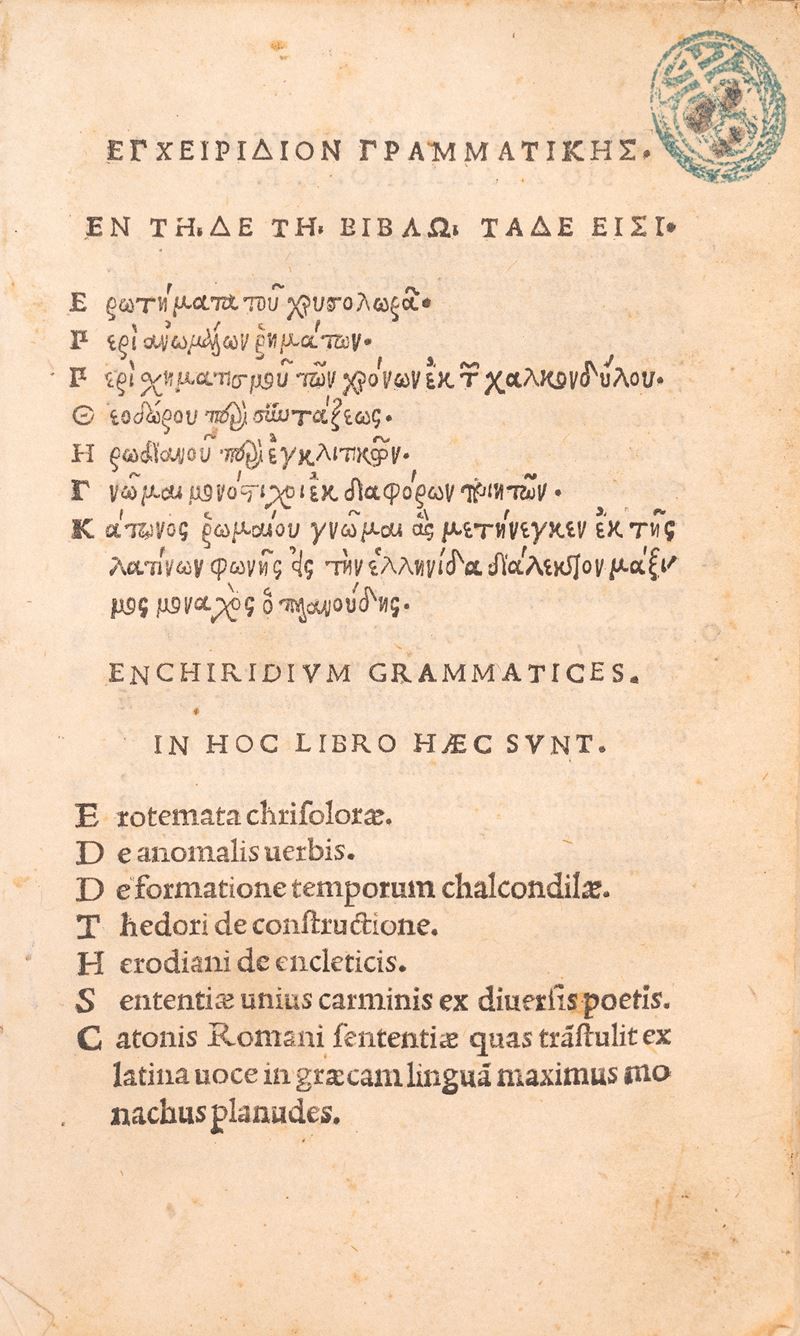 ΕΓΧΕΙΡΙΔΙΟΝ ΓΡΑΜΜΑΤΙΚΗΣ.
ΕΝ ΤΗι ΔΕ ΤΗι ΒΙΒΛΩι ΤΑΔΕ ΕΙΣΙ.
Ερωτήματα τοῦ χρυσολωρᾶ.
Περὶ ἀνωμάλων ῥημάτων.
Περὶ χηματισμοῦ τῶν χρόνων ἐκ τ͂ χαλκονδύλου.
Θεοδώρου περὶ συντάξεως.
Ηρωδιανοῦ περὶ ἐγκλιτικῶν.
Γνῶμαι μονόστιχοι ἐκ διαφόρων ποιητῶν.
Κάτωνος ῥωμαίου γνῶμαι ἃς μετήνεγκεν ἐκ τῆς
λατίνων φωνῆς εἰς τὴν ἑλληνίδα διάλεκτον μάξι
μος μοναχὸς ὁ πλανούδης.
ENCHIRIDIVM GRAMMATICES.
IN HOC LIBRO HÆC SVNT.
Erotemata chriſoloræ.
De anomalis uerbis.
De formatione temporum chalcondilæ.
Thedori de conſtructione.
Herodiani de encleticis.
Sententiæ unius carminis ex diuerſis poetis.
Catonis Romani ſententiæ quas trāſtulit ex
latina uoce in græcam linguā maximus mo
nachus planudes.